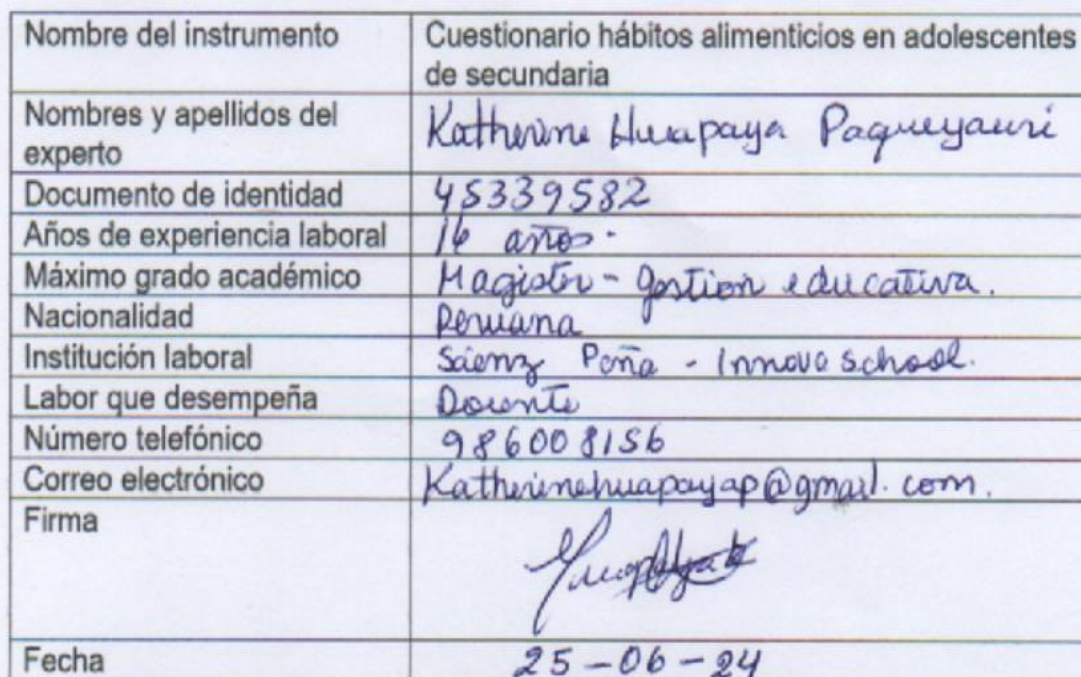 Nombre del instrumento
Cuestionario hábitos alimenticios en adolescentes
de secundaria
Nombres y apellidos del
experto
Katherine Huapaya Paqueyauri
Documento de identidad
45339582
Años de experiencia laboral
16 años.
Máximo grado académico
Magister - gestion educativa.
Nacionalidad
Peruana
Institución laboral
Sáenz Peña - Innova school.
Labor que desempeña
Docente
Número telefónico
986008156
Correo electrónico
Katherinehuapayap@gmail.com.
Firma
Fecha
25-06-24